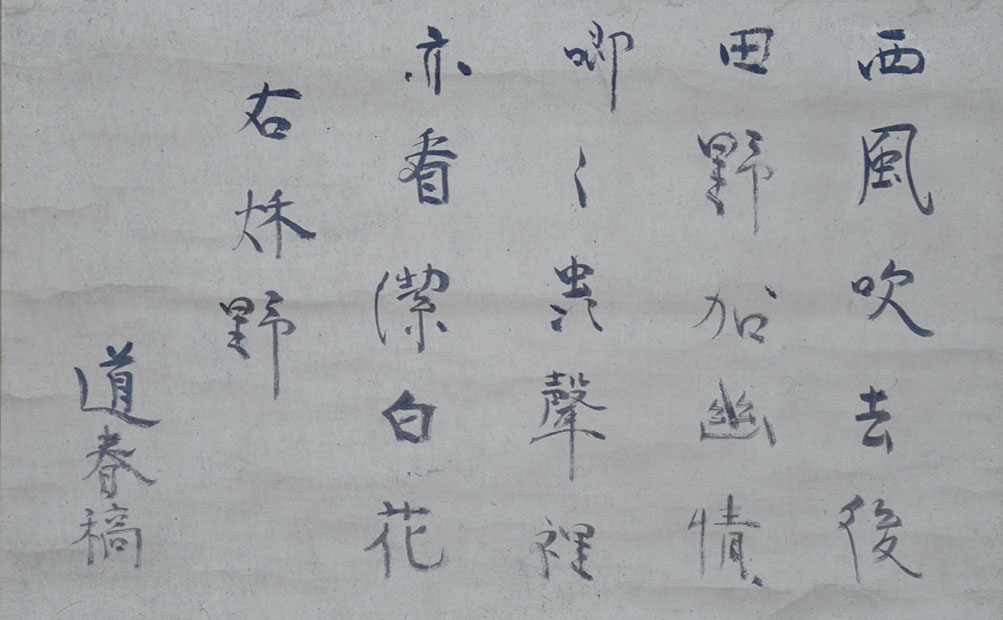 西風吹去後
田野加幽情
唧〻蟲聲裡
亦看潔白花
右秌野
道春稿